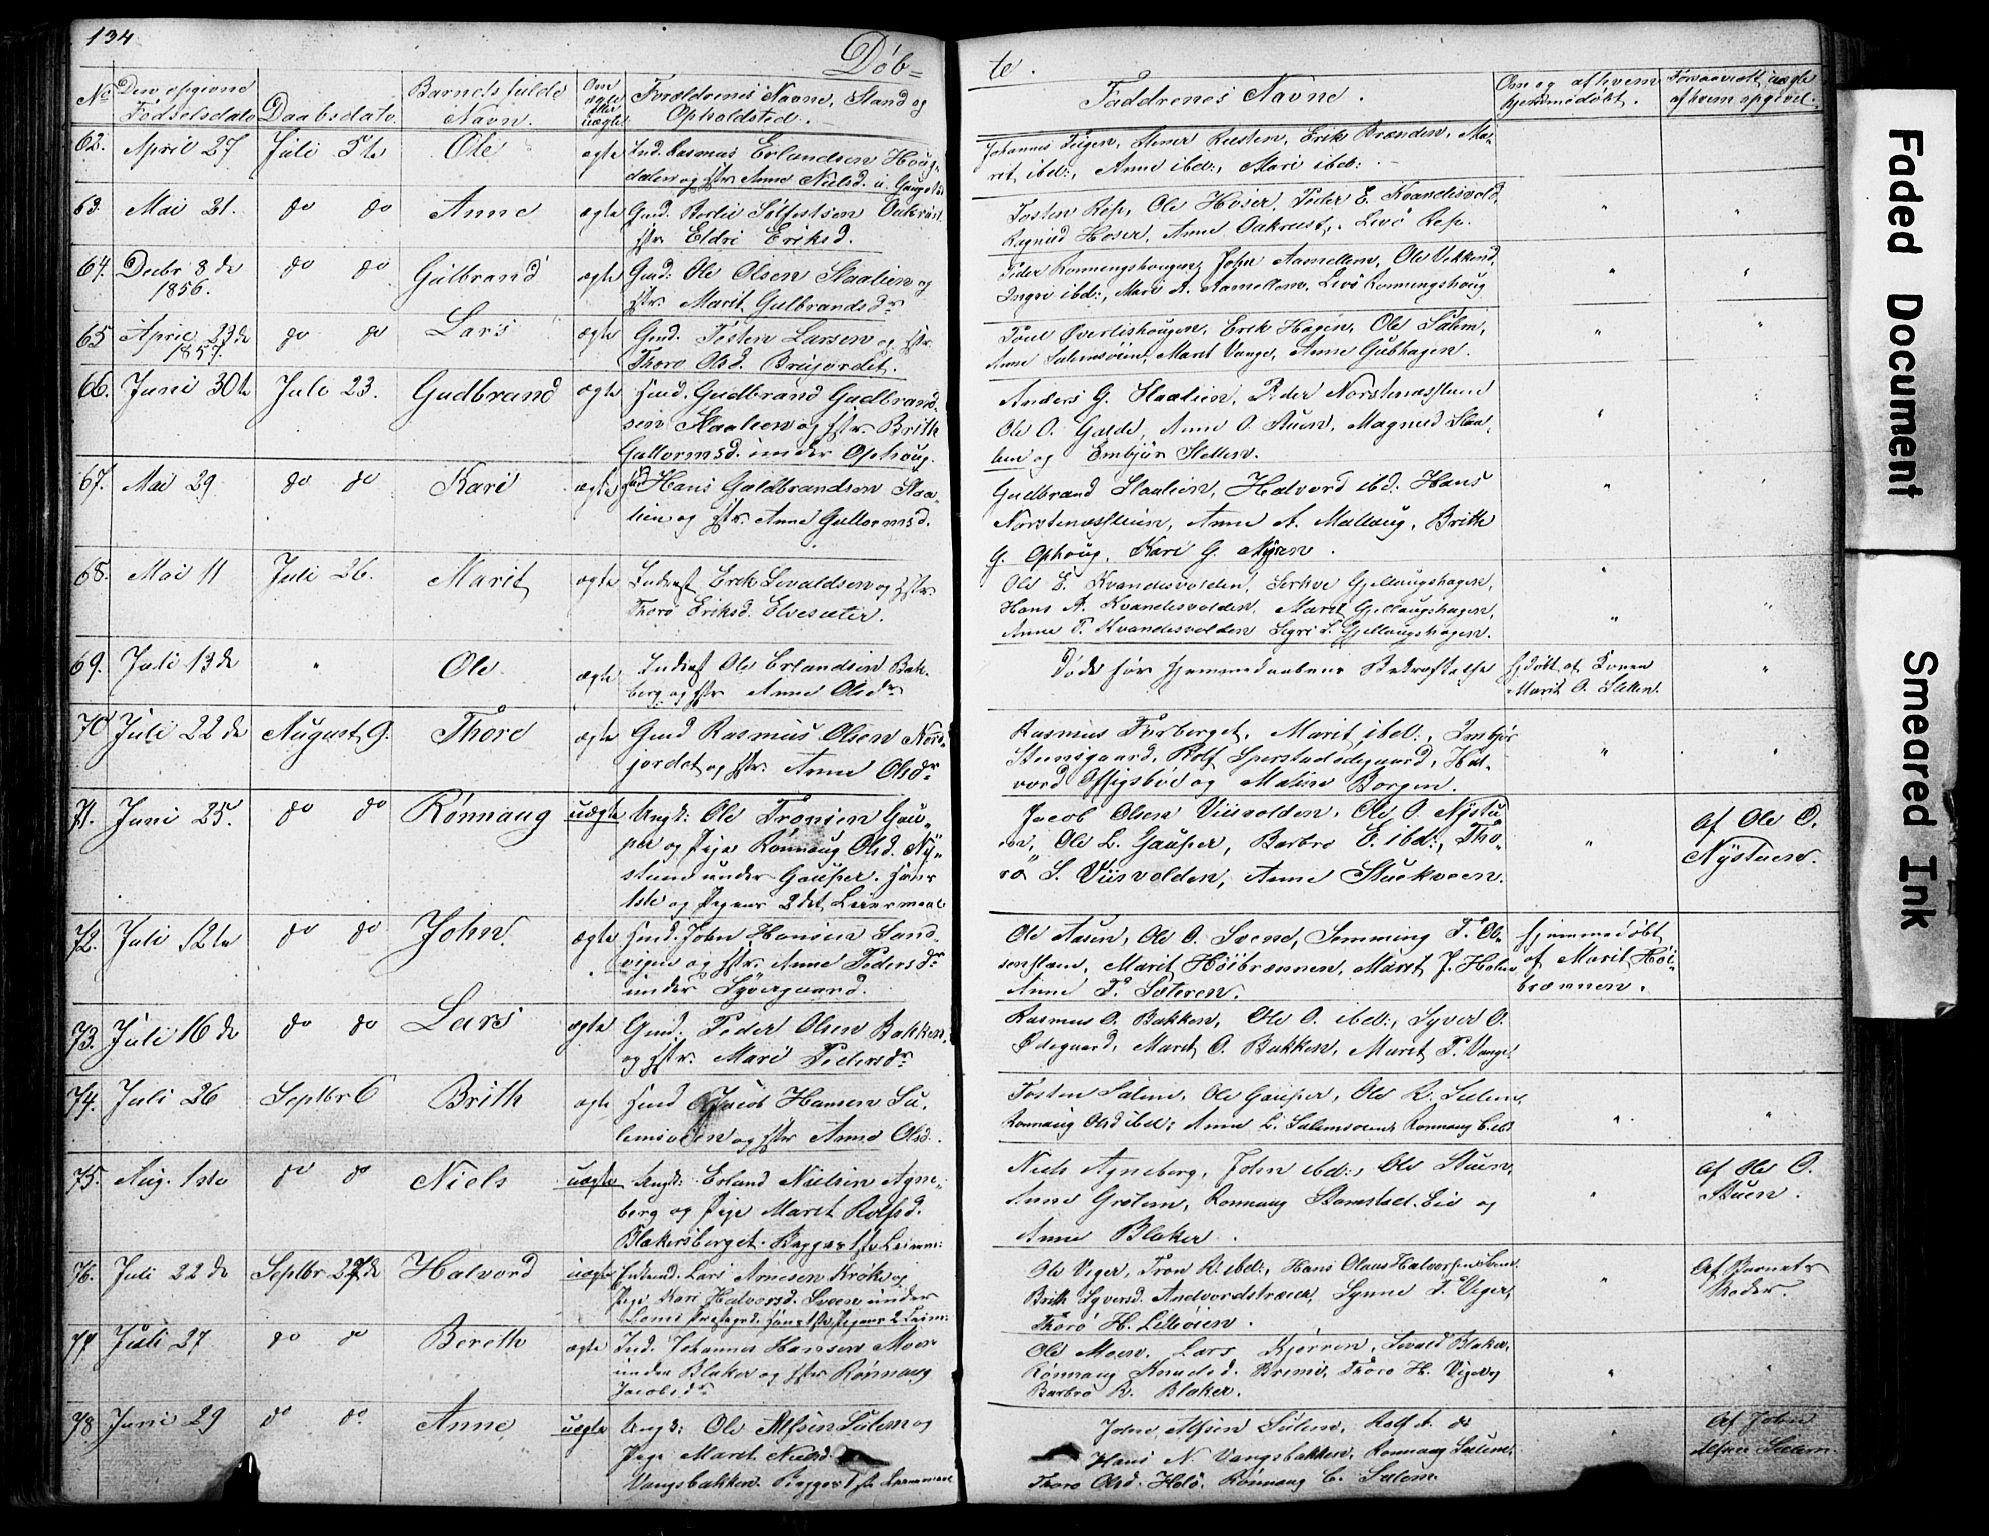 134
Døb=
te.
No
Den opgivne
Fødselsdato
Daabsdato
Barnets fulde
Navn.
Om
ægte
eller
uægte
Forældrenes Navne, Stand og
Opholdsted.
Faddrenes Navne.
Om og af hvem
hjemmedøbt.
af hvem opgivet.
62. April 27 Juli 5te Ole ægte Ind. Rasmus Erlandsen Houg-
dalen og Hstr. Anne Nielsd. u. Gaupe
Erik Brænden, Ma-
rit ibd:, Anne ibd:, Mari ibd:
63. Mai 31. do do Anne ægte Gmd.
Hstr. Eldri Eriksd.
Tosten Rep, Ole Hoser, Peder E. Kvandesvold
Ragnild Hoser, Anne Aakrust, Livö Rep.
64. Decbr 8de do do Gulbrand ægte Gmd: Ole Olsen Slaalien og
1856.
Hstr. Marit Gulbrandsdr
Peder Rønningshougen, John Aamellem, Ole
Ingri ibd:, Mari A. Aamellem, Livö Rønningshoug
65 April 23de do do Lars ægte Gmd. Tosten Larsen og Hstr.
1857.
Thoro Olsd. Brujordet.
Erik Hagen, Ole Sulem,
Marit Vange, Anne Gubhagen.
66. Juni 30te Juli 23. Gudbrand ægte Hmd. Gudbrand Gudbrand-
sen Slaalien og Hstr. Brith
Guttormsd. under Ophoug.
Anders G. Slaalien, Peder Norstenæsfleen
Ole O. Galde, Anne O. Stuen, Magnild Slaa-
lien og Embjør Sletten.
67. Mai 29 do do Kari ægte Hmd Hans Guldbrandsen Slaa-
lien og Hstr. Anne Guttormsd.
Gudbrand Slaalien, Halvord ibd: Hans
Anne A. Mallaug, Brith
G. Ophoug, Kari G. Myren.
68. Mai 11 Juli 26. Marit ægte Inderst Erik Sevaldsen og Hstr.
Thorö Eriksd. Elvesæter.
Ole E. Kvandesvolden, Gjellaugshagen,
Hans A. Kvandesvolden, Marit Gjellaugshagen,
Anne T. Kvandesvolden Sigri S. Gjellaugshagen.
69. Juli 13de " Ole ægte Inderst Ole Erlandsen Bak-
berg og Hstr. Anne Olsdr
Døde før Hjemmedaabens Bekræftelse Hjdøbt af Konen
Marit O. Sletten.
70 Juli 22de August 9. Thore ægte Gmd Rasmus Olsen Nord-
jordet og Hstr. Anne Olsdr
Rasmus Furberget, Marit ibd:, Imbjør
Steensgaard, Rolf Sperstadødegaard, Hal-
vord Offigsböe og Malene Borgen.
71. Juni 25. do do Rønnaug uægte Ungk: Ole Tronsen Gau-
per og Pige Rønnaug Olsd. Ny-
stuen under Gauper. Hans
1ste og Pigens 2det Leiermaal
Jacob Olsen Viisvolden, Ole O. Nystu-
en, Ole L. Gauper, Barbro E. ibd:, Tho-
rö S. Viisvolden, Anne Stuekveen.
Af Ole O.
Nystuen.
72. Juli 12te do do John ægte Hmd. John Hansen Sand-
vigen og Hstr. Anne Pedersdr
under Syvergaard.
Ole Aasen, Ole O. Svend, Semming T. Ol-
Marit Høibrænnen, Marit J. Holen
Anne P. Sæteren.
Hjemmedøbt
af Marit Høi-
brænnen.
73. Juli 16de do do Lars ægte Gmd. Peder Olsen Bakken,
og Hstr. Mari Pedersdr
Rasmus O. Bakken, Ole O. ibd:, Syver O.
Ødegaard, Marit O. Bakken, Marit P. Vange
74. Juli 26 Septbr 6 Brith ægte Hmd Jacob Hansen Su-
lemsoien og Hstr Anne Olsd.
Tosten Sulem, Ole Gauper, Ole R. Sulem,
Rønnaug Olsd ibd: Anne L. Sulemsoien, Rønnaug E. ibd
75. Aug. 1ste do do Niels uægte Ungk: Erland Nielsen Agne-
berg og Pige Marit Rolfsd.
Blakersberget. Begges 1ste Leierm:
Niels Agneberg, John ibd:, Ole Stuen,
Anne Grötem, Rønnaug Stamstad, Eie og
Anne Blaker.
Af Ole O.
Stuen.
76. Juli 22de Septbr 27de Halvord uægte Enkemd. Lars Arnesen Krøke og
Pige Kari Halvorsd. Sveen under
Loms Prestegrd. Hans 1ste Pigens 2 Leierm:
Ole Viger, Tron R. ibd:, Hans Olaus Halvorsen
Brith Syversd. Andvordstræed, Synne T. Viger,
Thorö H. Lilleöien.
Af Barnets
Moder.
77 Juli 27 do do Bereth ægte Ind. Johannes Hansen Moen
under Blaker og Hstr Rønnaug
Jacobsdr
Ole Moen, Lars Bjørren, Sevald Blaker,
Rønnaug Knudsd. Brimi, Thore H. Viger og
Barbro R. Blaker.
78. Juni 29 do do Anne uægte Ungk: Ole Alfsen Sulem og
Pige Marit Nielsd.
Vangsbakken. Begges 1ste Leiermaal
John Alfsen Sulem, Rolf A. do
Hans N. Vangsbakken, Rønnaug Sulem,
Thoro Olsd. Holö, Rønnaug E. Sulem.
Af John
Alfsen Sulem.
Faded Document
Smeared Ink